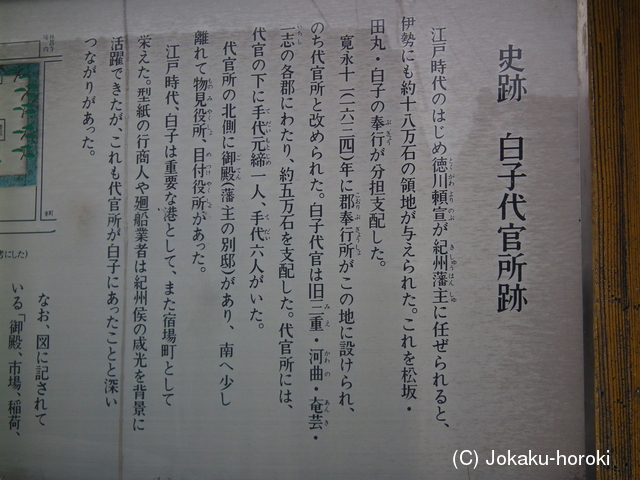 史跡　白子代官所跡
江戸時代のはじめ徳川頼宣が紀州藩主に任ぜられると、
伊勢にも約十八万石の領地が与えられた。これを松坂・
田丸・白子の奉行が分担支配した。
寛永十一(一六三四)年に郡奉行所がこの地に設けられ、
のち代官所と改められた。白子代官は旧三重・河曲・奄芸・
一志の各郡にわたり、約五万石を支配した。代官所には、
代官の下に手代元締一人、手代六人がいた。
代官所の北側に御殿(藩主の別邸)があり、南へ少し
離れて物見役所、目付役所があった。
江戸時代、白子は重要な港として、また宿場町として
栄えた。型紙の行商人や廻船業者は紀州侯の威光を背景に
活躍できたが、これも代官所が白子にあったことと深い
つながりがあった。
なお、図に記されて
いる「御殿、市場、稲荷、
にした)
(C) Jokaku-horoki